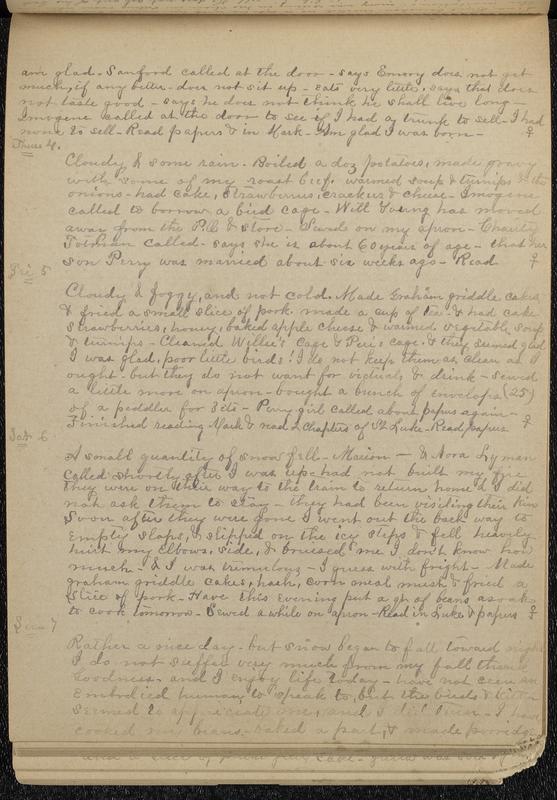 am glad. Sanford called at the door - says Emory does not get
much, if any better - does not sit up - eats very little, says that does
not taste good - says he does not think he shall live long -
Imogene called at the door to see if I had a trunk to sell - I had
none to sell - Read papers & in Mark - I'm glad I was born - ♀
Thurs 4.
Cloudy & some rain. Boiled a doz potatoes, made gravy
with some of my roast beef, warmed soup & turnips &
onions - had cake, strawberries, crackers & cheese - Imogene
called to borrow a bird cage - Will Young has moved
away from the P.O. & store - Sewed on my apron - Charity
called - says she is about 60 years of age - that her
son Perry was married about six weeks ago - Read ♀
Fri 5
Cloudy & foggy, and not cold. Made Graham griddle cakes
& fried a small slice of pork, made a cup of tea & had cake
strawberries, honey, baked apple cheese & warmed vegetable soup
& turnips - Cleaned Willie's cage & Peri's cage, & they seemed glad
I was glad, poor little birds! I do not keep them as clean as I
ought - but they do not want for victuals & drink - sewed
a little more on apron - bought a bunch of envelopes (25)
of a peddler for 3 cts - Perry girl called about papers again -
Finished reading Mark & read 2 chapters of St Luke - Read papers ♀
Sat 6
A small quantity of snow fell - Marion — & Nora Lyman
called shortly after I was up - had not built my fire
They were on their way to the train to return home & I did
not ask them to stay - they had been visiting their kin
Soon after they were gone I went out the back way to
empty slops, & slipped on the icy steps & fell heavily
hurt my elbows, side, & bruesed me I don't know how
much - & I was tremulous - I guess with fright - Made
graham griddle cakes, hash, corn meal mush & fried a
slice of pork - Have this evening put a qt of beans asoak
to cook tomorrow - Sewed a while on apron - Read in Luke & papers ♀
Sun 7
Rather a nice day - but snow began to fall toward night
I do not suffer very much from my fall thank
Goodness - and I enjoy life today - have not seen an
embodied human, to speak to, but the birds &
seemed to appreciate me, and I did them - I have
cooked my beans, baked a part, & made porridge